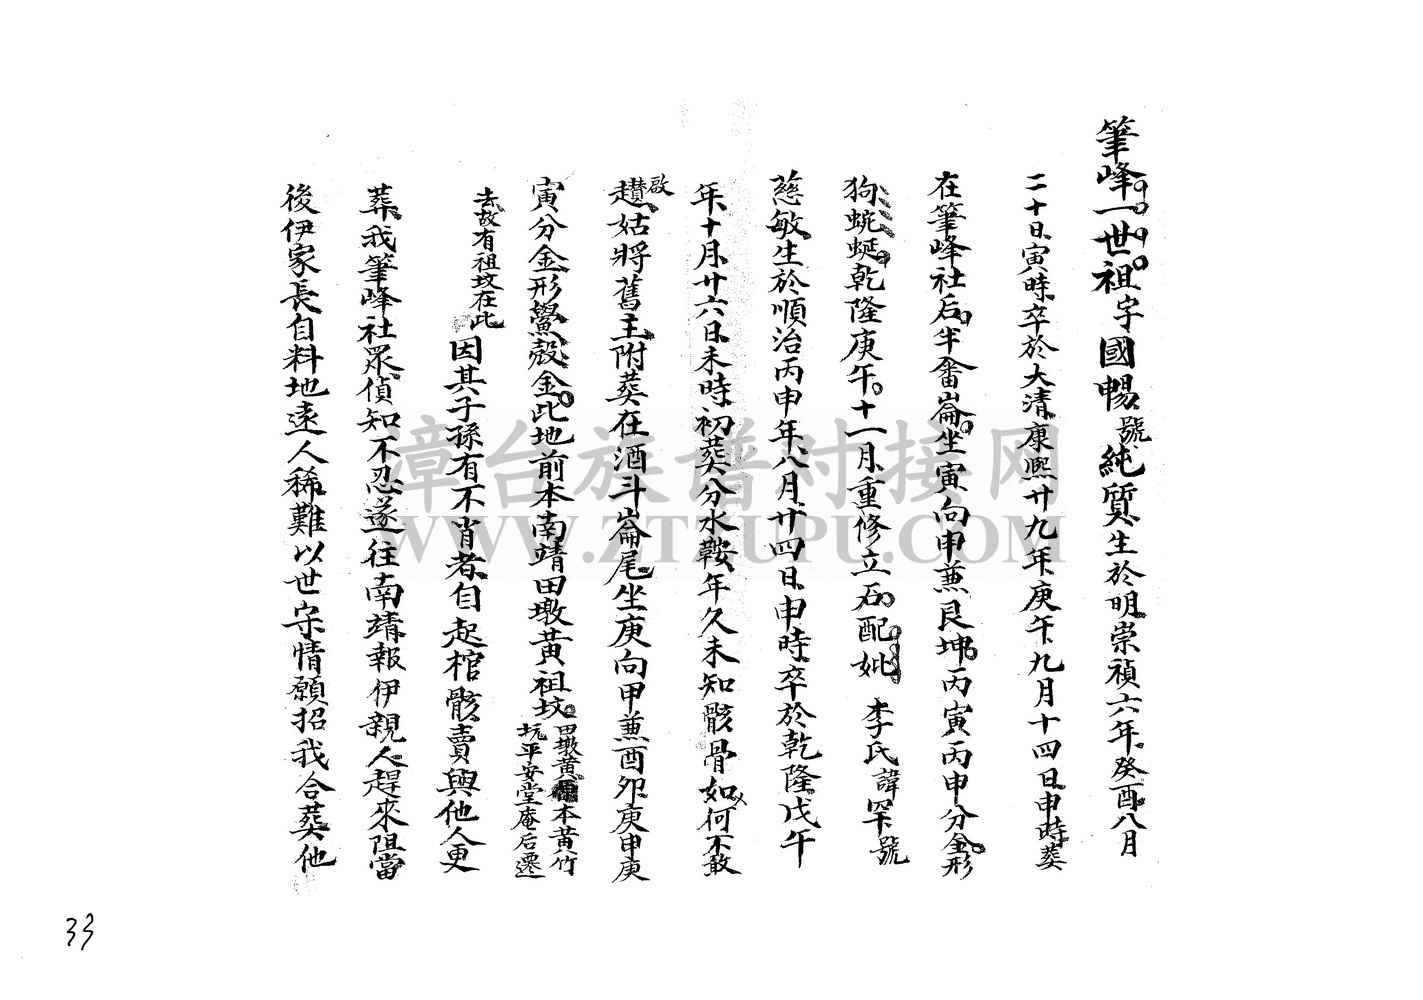 筆峰一世祖字國暢號純質生於明崇禎六年癸酉八月
二十日寅時卒於大清康熙廿九年庚午九月十四日申時葬
在筆峰社后半畬崙坐寅向申兼艮坤丙寅丙申分金形
狗蜿蜒乾隆庚午十一月重修立石配妣李氏諱罕號
慈敏生於順治丙申年八月廿四日申時卒於乾隆戊午
年十月廿六日未時初葬分水鞍年久未知骸骨如何不敢
啟
趲姑將舊主附葬在酒斗崙尾坐庚向甲兼酉卯庚申庚
寅分金形鱟殼金此地前本南靖田墩黃祖坟
田墩黃本黃竹
坑平安堂庵后遷
去故有祖坟在此
因其子孫有不肖者自起棺骸賣與他人更
葬我筆峰社眾偵知不忍遂往南靖報伊親人趕來阻當
後伊家長自料地遠人稀難以世守情願招我合葬他
漳台族谱对接网
WWW.ZTZUPU.COM
33